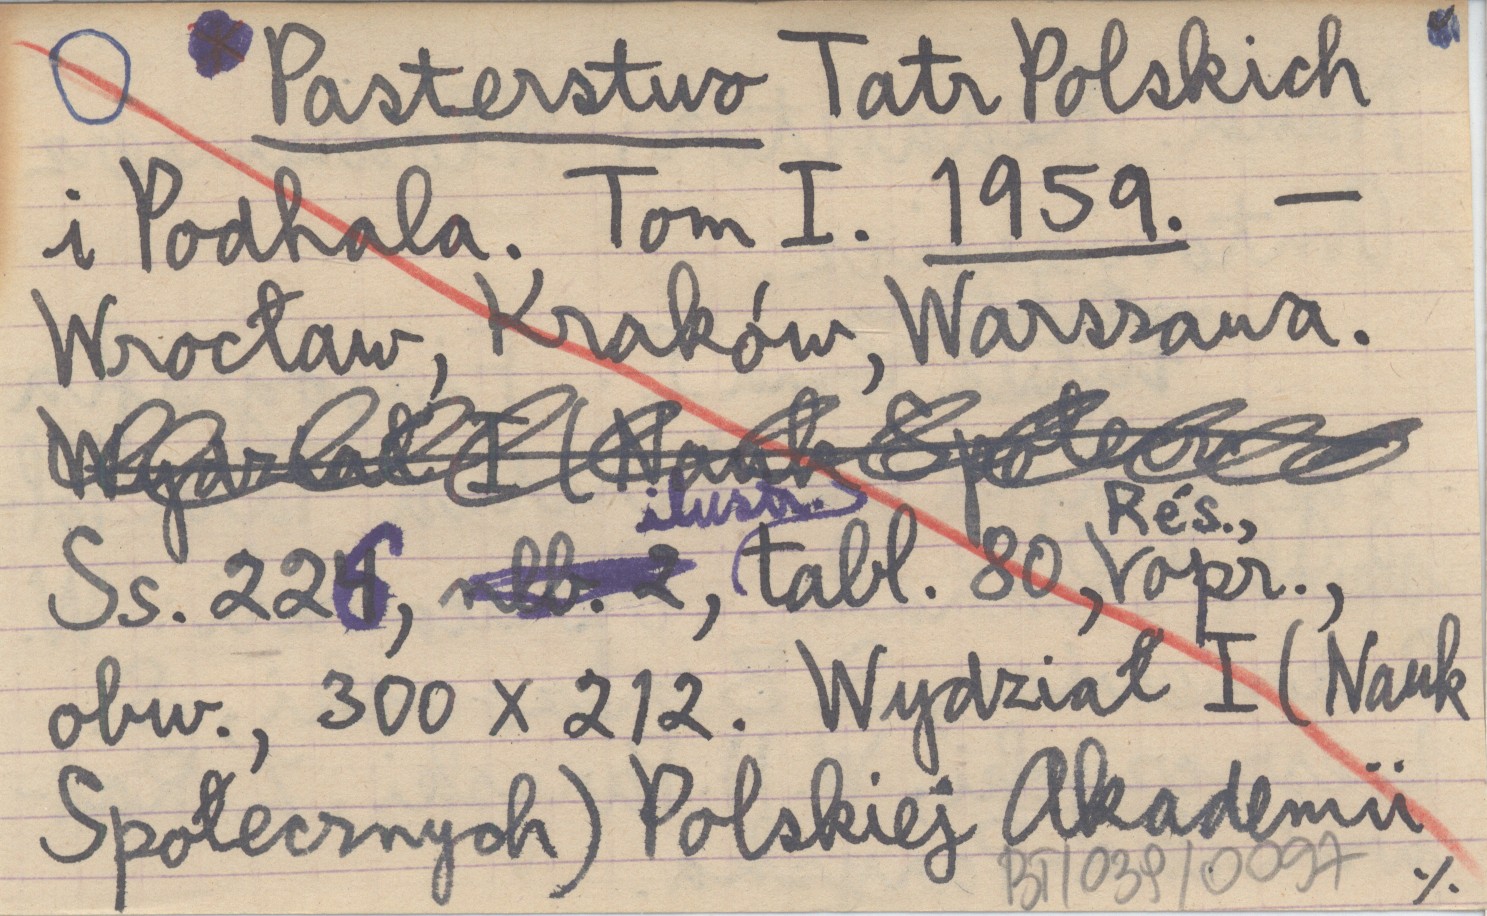 Pasterstwo Tatr Polskich
i Podhala. Tom I. 1959. —
Wrocław, Kraków, Warszawa.
Wydział I (Nauk Społecz
ilustr. Rés.,
Ss. 226, nlb. 2, tabl. 80, Vopr.,
obw., 300 x 212. Wydział I (Nauk
Społecznych) Polskiej Akademii
BT/039/0097 ./.